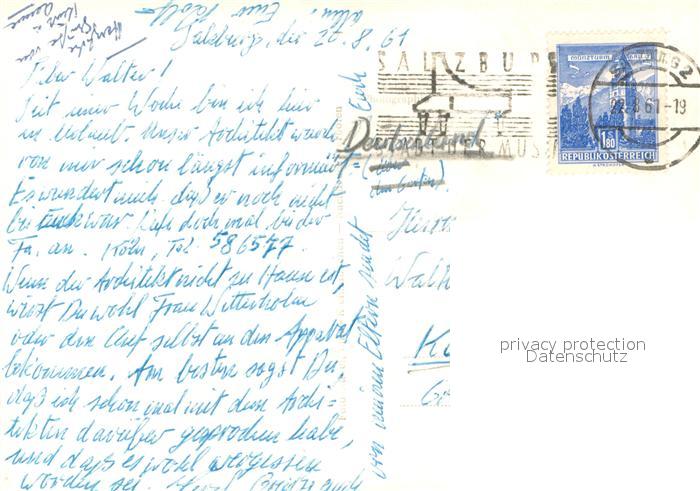 Salzburg, den 20.8.61
Lieber Walter!
Seit einer Woche bin ich hier
in Urlaub. Unser Architekt wurde
von mir schon längst informiert.
Es wundert mich, daß er noch nicht
bei war. Ruf doch mal bei der
Fa. an. Köln, Tel. 586577.
Wenn der Architekt nicht zu Hause ist,
wirst Du wohl Frau
oder den Chef selbst an den Apparat
bekommen. Am besten sagst Du,
daß ich schon mal mit dem Archi-
tekten darüber gesprochen habe,
und daß es wohl vergessen
worden sei. Herzl. Grüße auch
von meinen Eltern sendet
Euch
allen! Euer
Herzliche
Grüße von
SALZBURG
Deutschland
SALZBURG 2
22.8.61-19
MÜNZTURM
1.80
REPUBLIK ÖSTERREICH
Herrn
Walt
K
privacy protection
Datenschutz